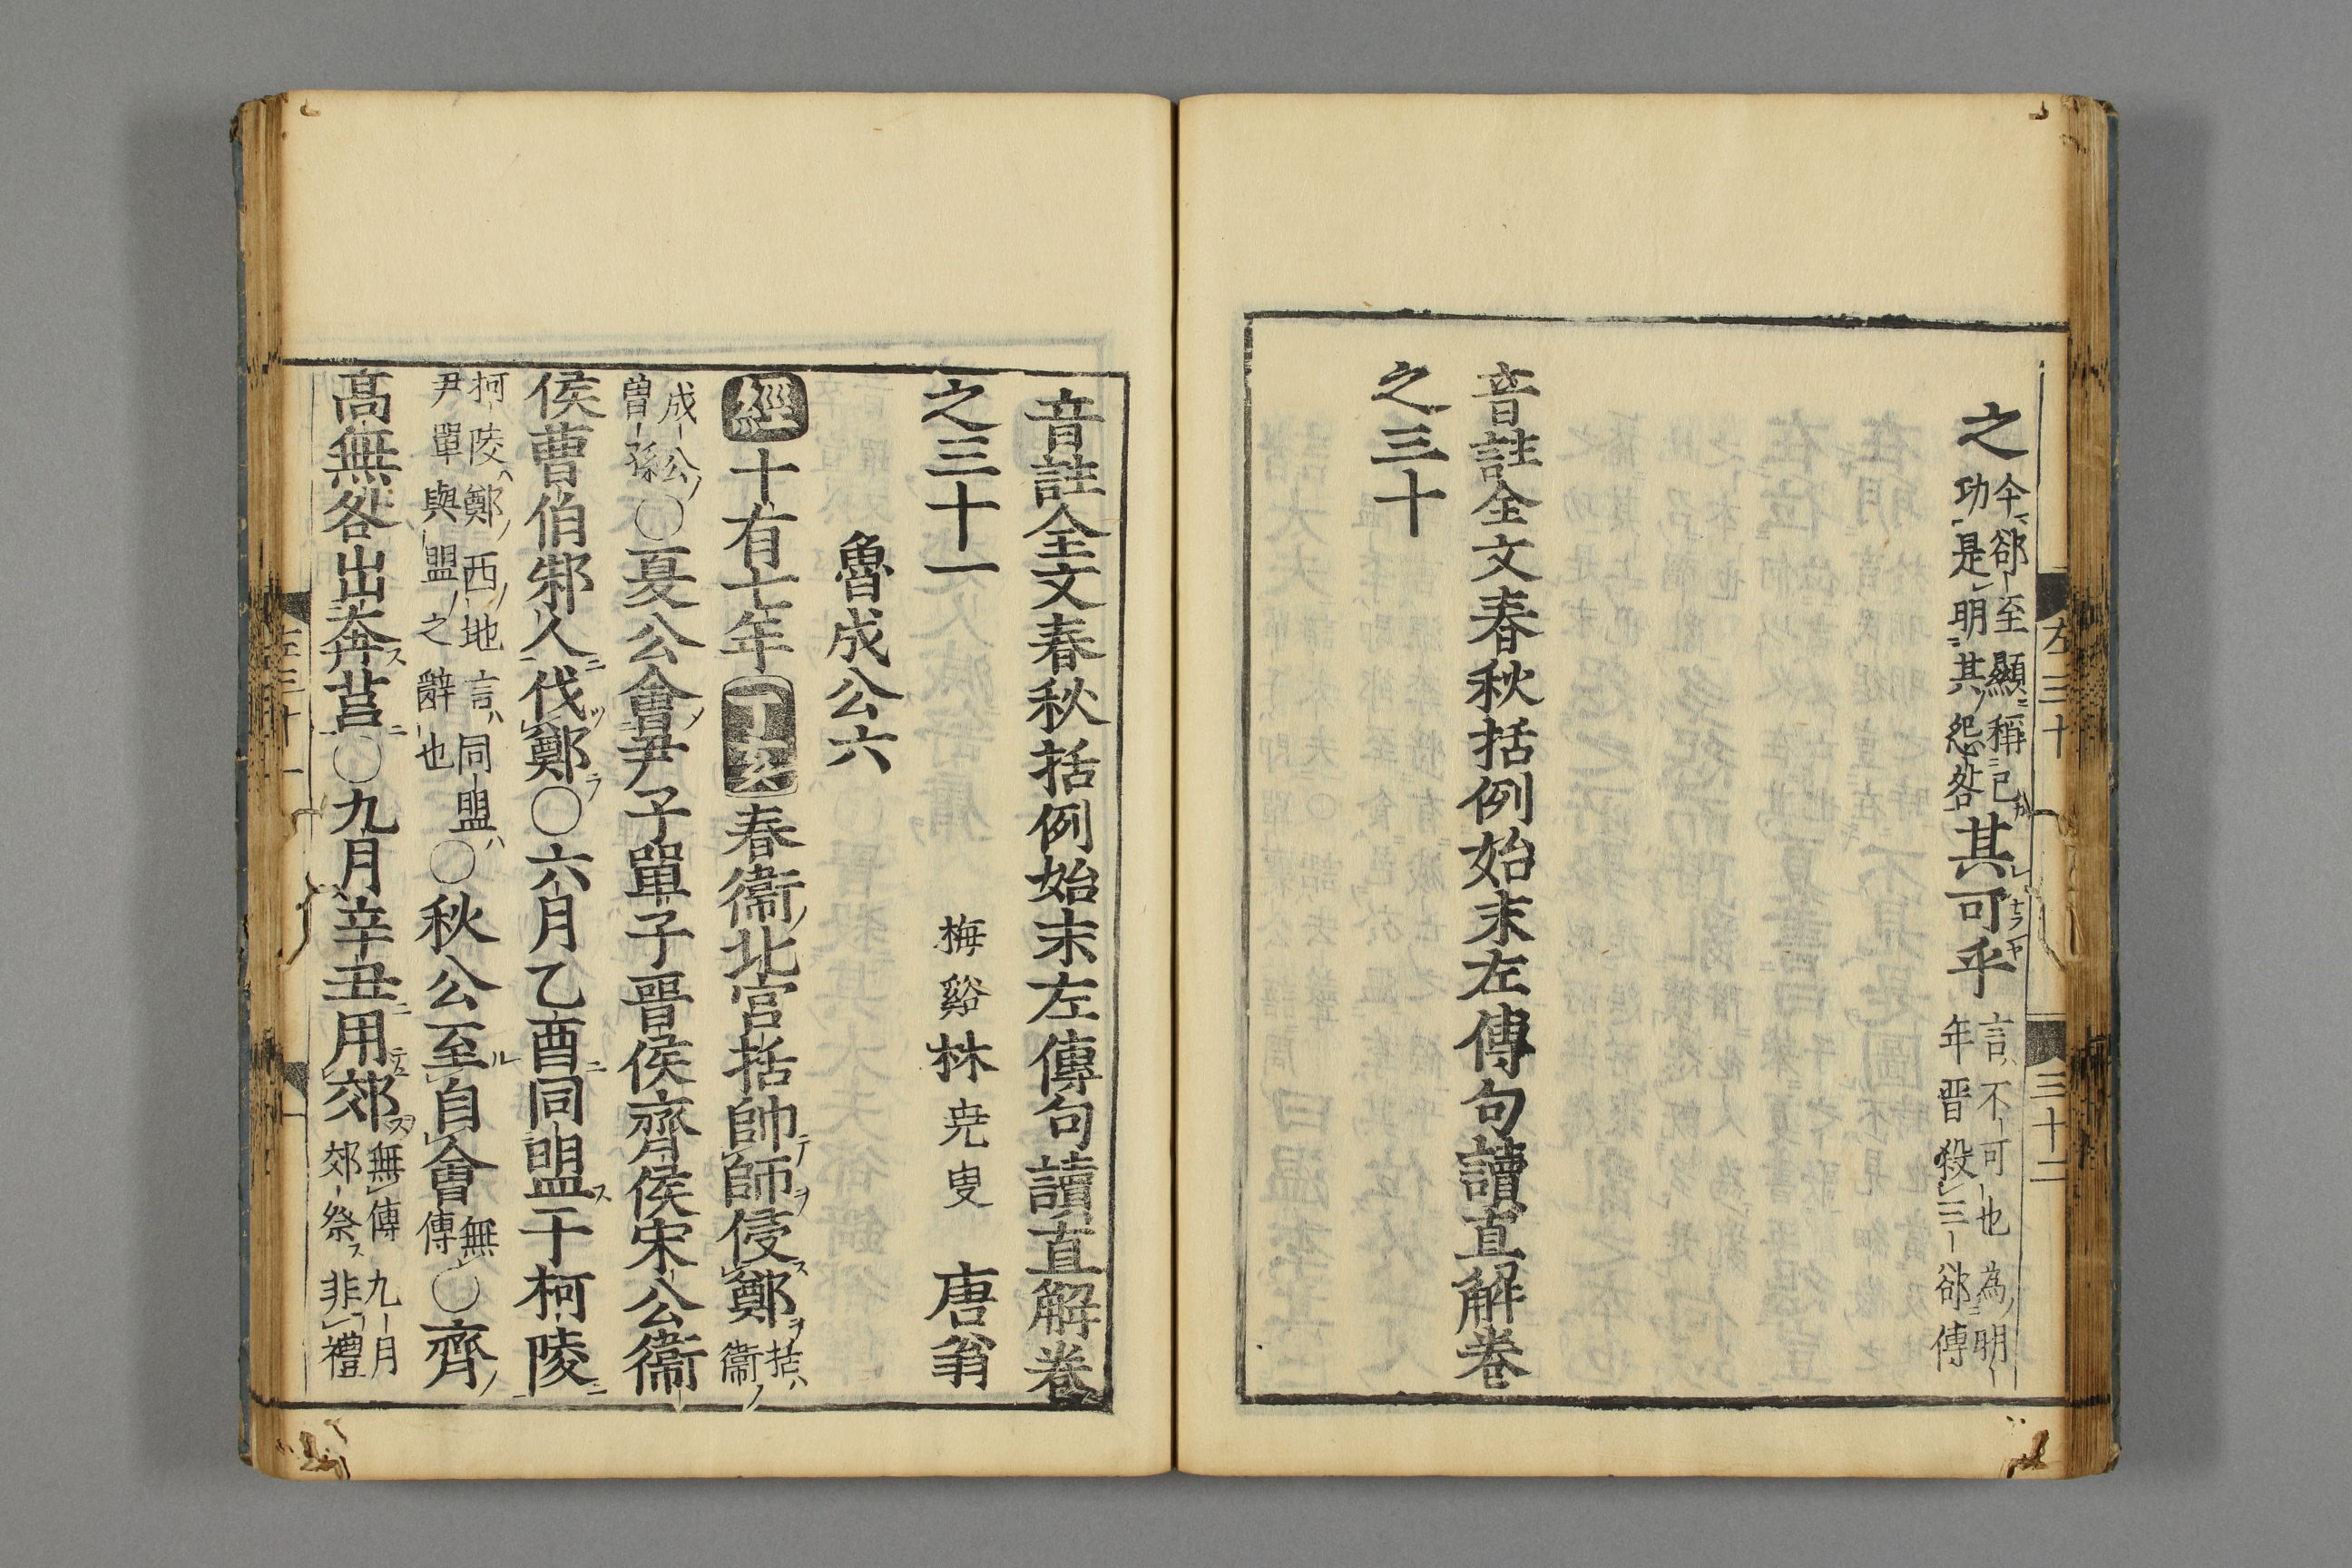 之今郤至顯稱己功是明其怨咎其可乎言不可也為明年晋殺三郤傳
音註全文春秋括例始末左傳句讀直解卷
之三十
左三十
三十二
音註全文春秋括例始末左傳句讀直解卷
之三十一
梅谿林尭叟 唐翁
魯成公六
經十有七年丁亥春衞北宮括帥師侵鄭括衞
成公曽孫〇夏公會尹子單子晉侯齊侯宋公衞
侯曹伯邾人伐鄭〇六月乙酉同盟于柯陵
柯陵鄭西地言同盟尹單與盟之辭也〇秋公至自會無傳〇齊
髙無咎出奔莒〇九月辛丑用郊無傳九月郊祭非禮
左三十一
一